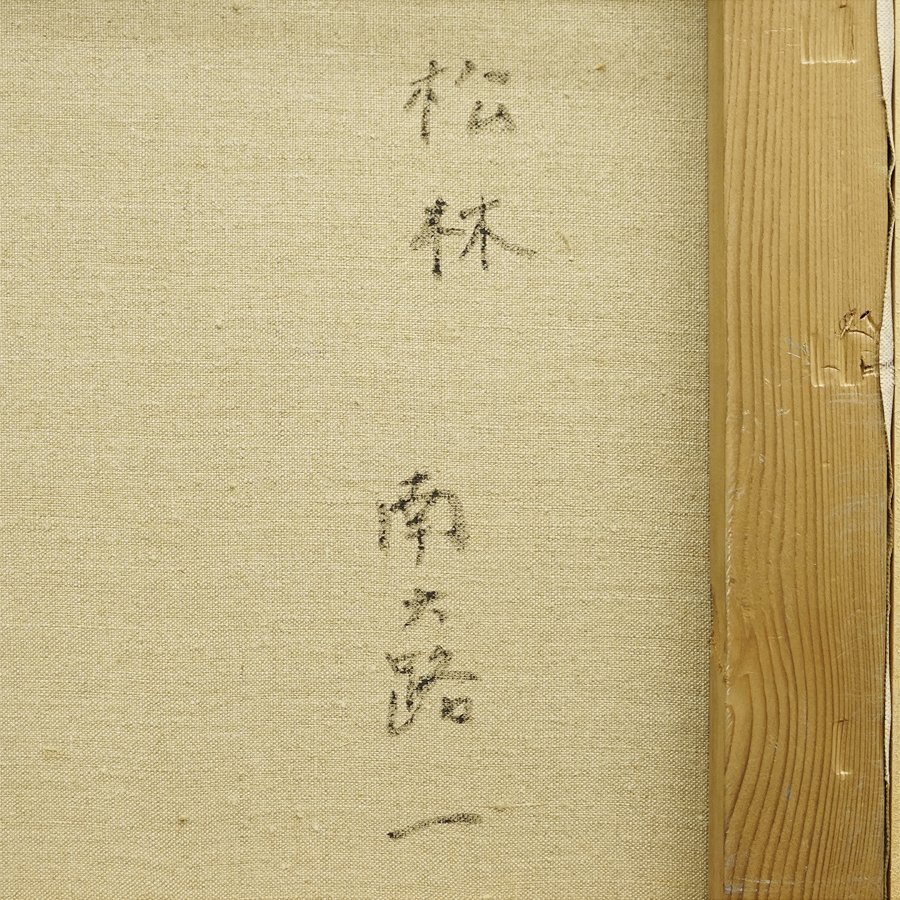 松林
南大路一